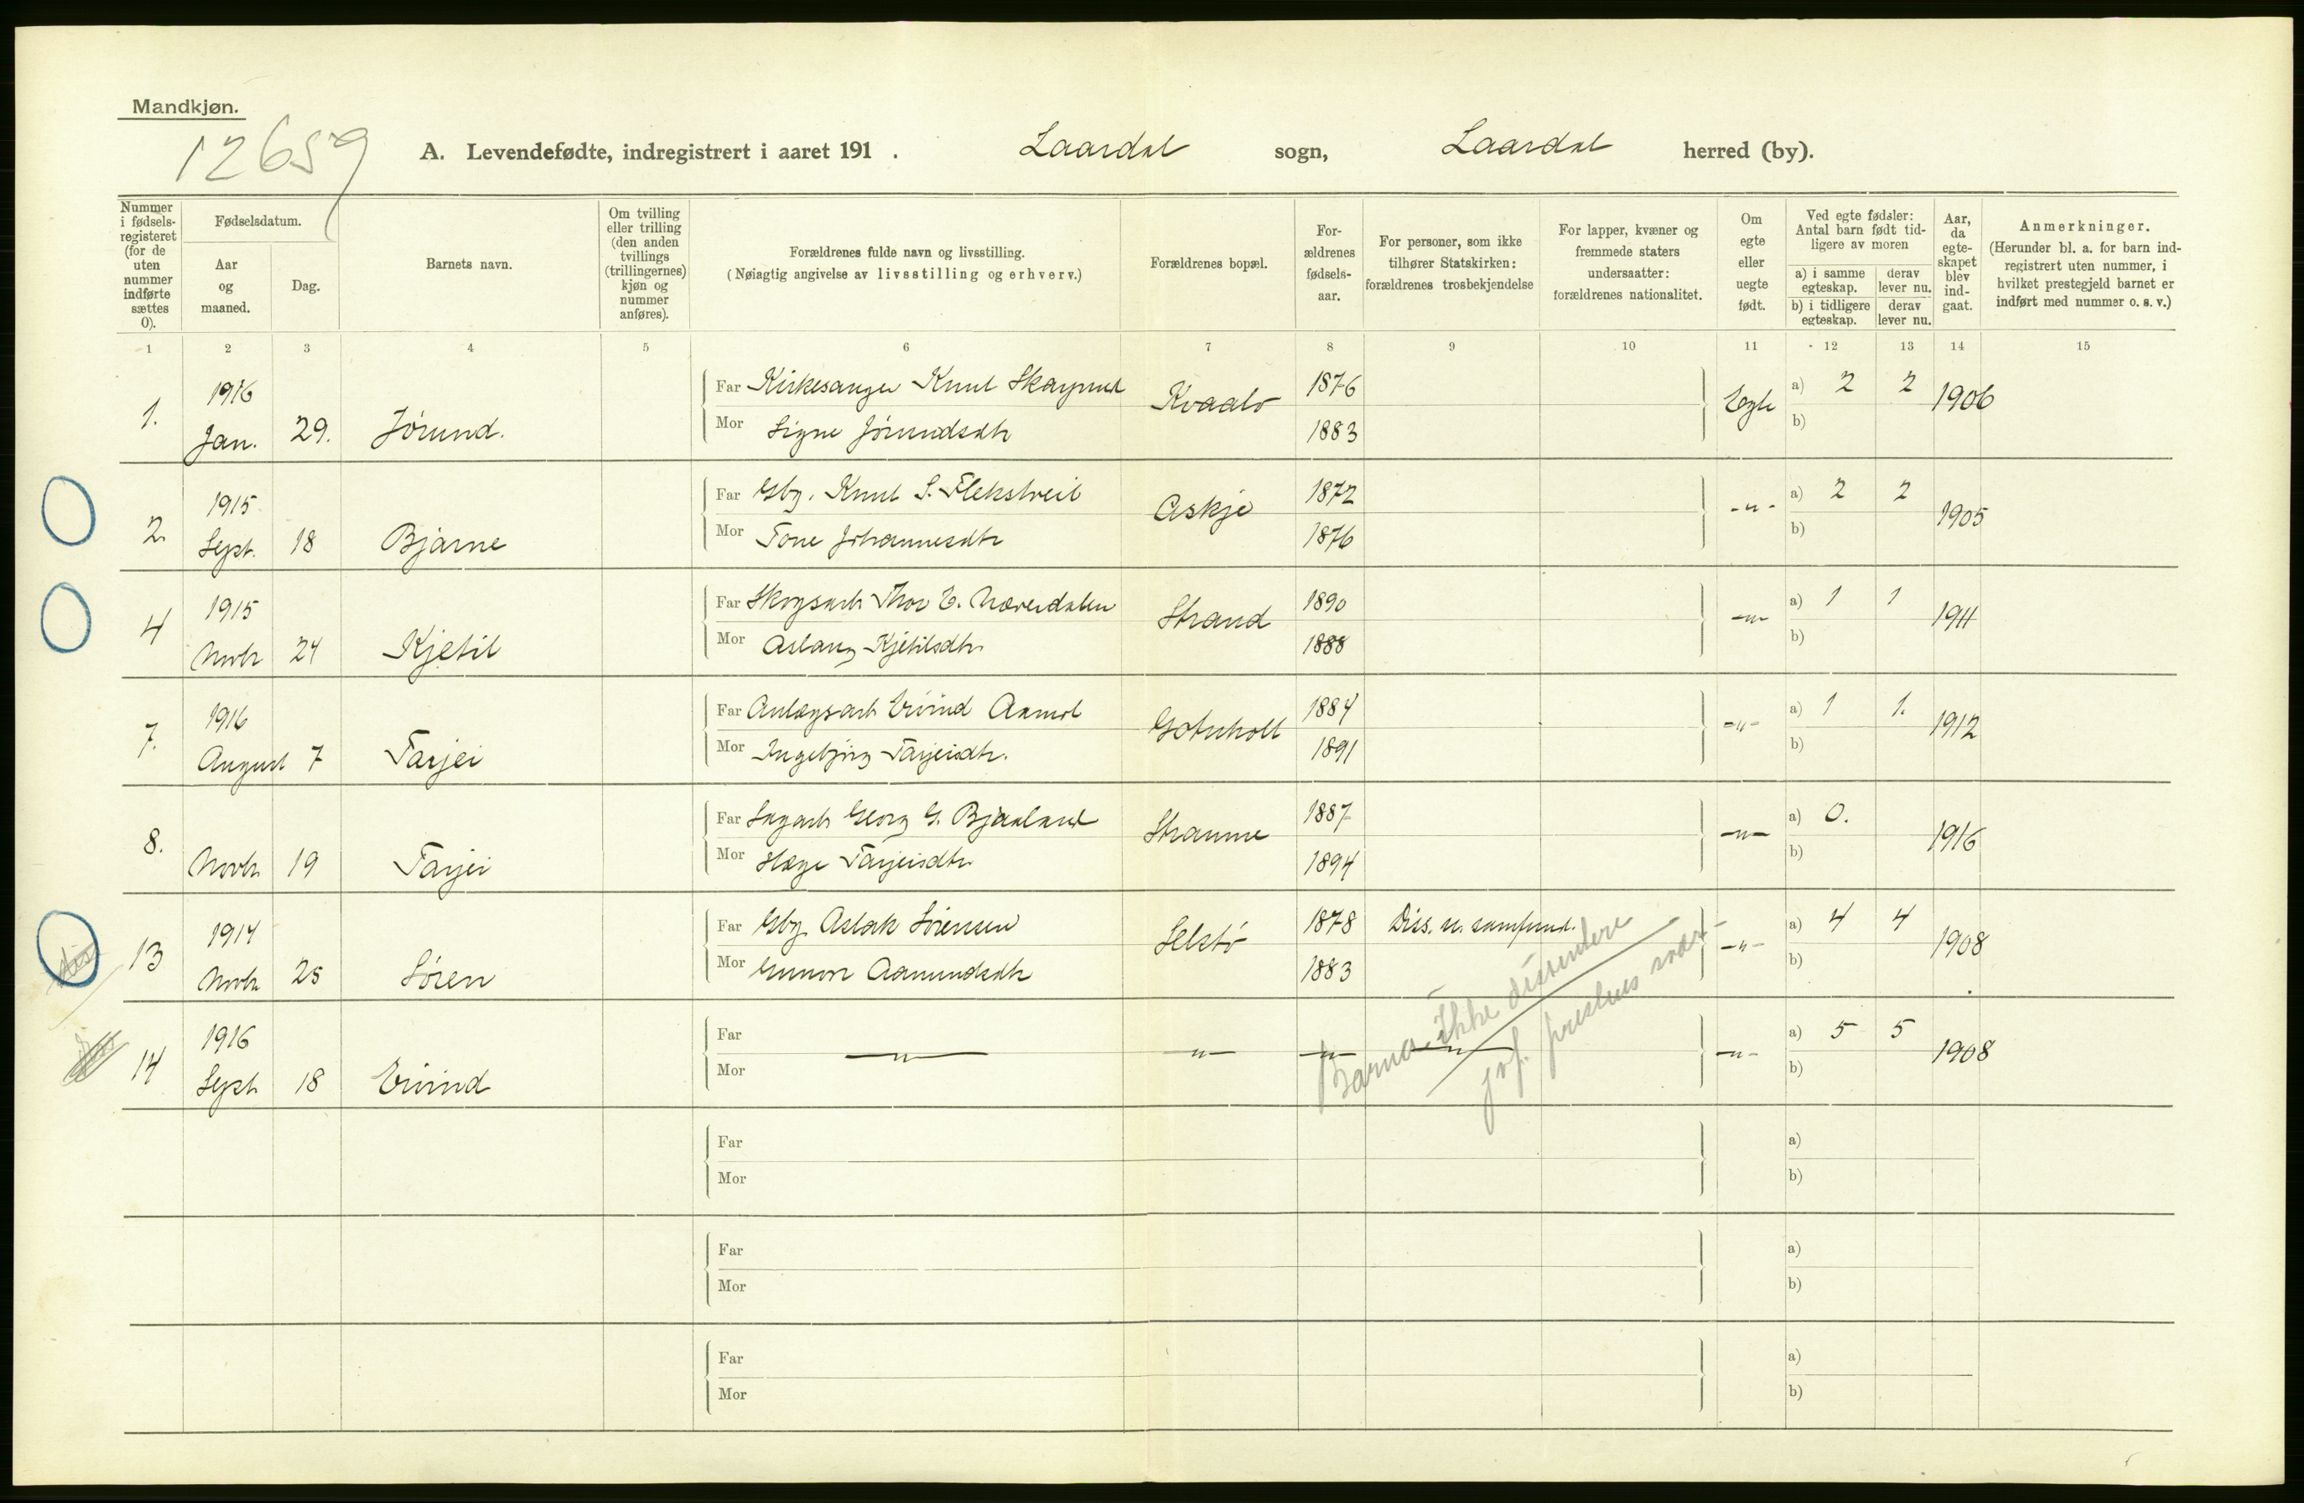 Mandkjøn.
12659
A. Levendefødte, indregistrert i aaret 191 . Laardal sogn, Laardal herred (by).
Nummer i fødsels-registeret (for de uten nummer indførte sættes 0).
Fødselsdatum.
Aar og maaned.
Dag.
Barnets navn.
Om tvilling eller trilling (den anden tvillings (trillingernes) kjøn og nummer anføres).
Forældrenes fulde navn og livsstilling.
(Nøiagtig angivelse av livsstilling og erhverv.)
Forældrenes bopæl.
For-ældrenes fødsels-aar.
For personer, som ikke tilhører Statskirken: forældrenes trosbekjendelse
For lapper, kvæner og fremmede staters undersaatter: forældrenes nationalitet.
Om egte eller uegte født.
Ved egte fødsler: Antal barn født tid-ligere av moren
a) i samme egteskap.
derav lever nu.
b) i tidligere egteskap.
derav lever nu.
Aar, da egte-skapet blev ind-gaat.
Anmerkninger.
(Herunder bl. a. for barn ind-registrert uten nummer, i hvilket prestegjeld barnet er indført med nummer o. s. v.)
1 2 3 4 5 6 7 8 9 10 11 12 13 14 15
1. 1916 Jan. 29. Jørund.
Far Kirkesanger Knut Skarprud Kvaalo 1876 Egte a) 2 2 1906
Mor Signe Jørundsdtr 1883 b)
2. 1915 Sept. 18 Bjarne
Far Gbr. Knut S. Flekstveit Askje 1872 -"- a) 2 2 1905
Mor Tone Johannesdtr 1876 b)
4 1915 Novbr 24 Kjetil
Far Skogsarb Thor E. Næverdalen Strand 1890 -"- a) 1 1 1911
Mor Aslaug Kjetilsdtr 1888 b)
7. 1916 August 7 Tarjei
Far Anlægsarb Eivind Aamot Gotuholt 1884 -"- a) 1 1. 1912
Mor Ingebjørg Tarjeisdtr. 1891 b)
8. Novbr 19 Tarjei
Far Sagarb Georg G. Bjaaland Straume 1887 -"- a) 0. 1916
Mor Hæge Tarjeisdtr 1894 b)
13 1914 Novbr 25 Søren
Far Gbr. Aslak Sørensen Selstø 1878 Diss. u. samfund. -"- a) 4 4 1908
Mor Gunvor Aamundsdtr 1883 b)
14 1916 Sept 18 Eivind
Far -"- -"- -"- -"- -"- a) 5 5 1908
Mor b)
Barna ikke dissentere
jvf. prestens svar
Far a)
Mor b)
Far a)
Mor b)
Far a)
Mor b)